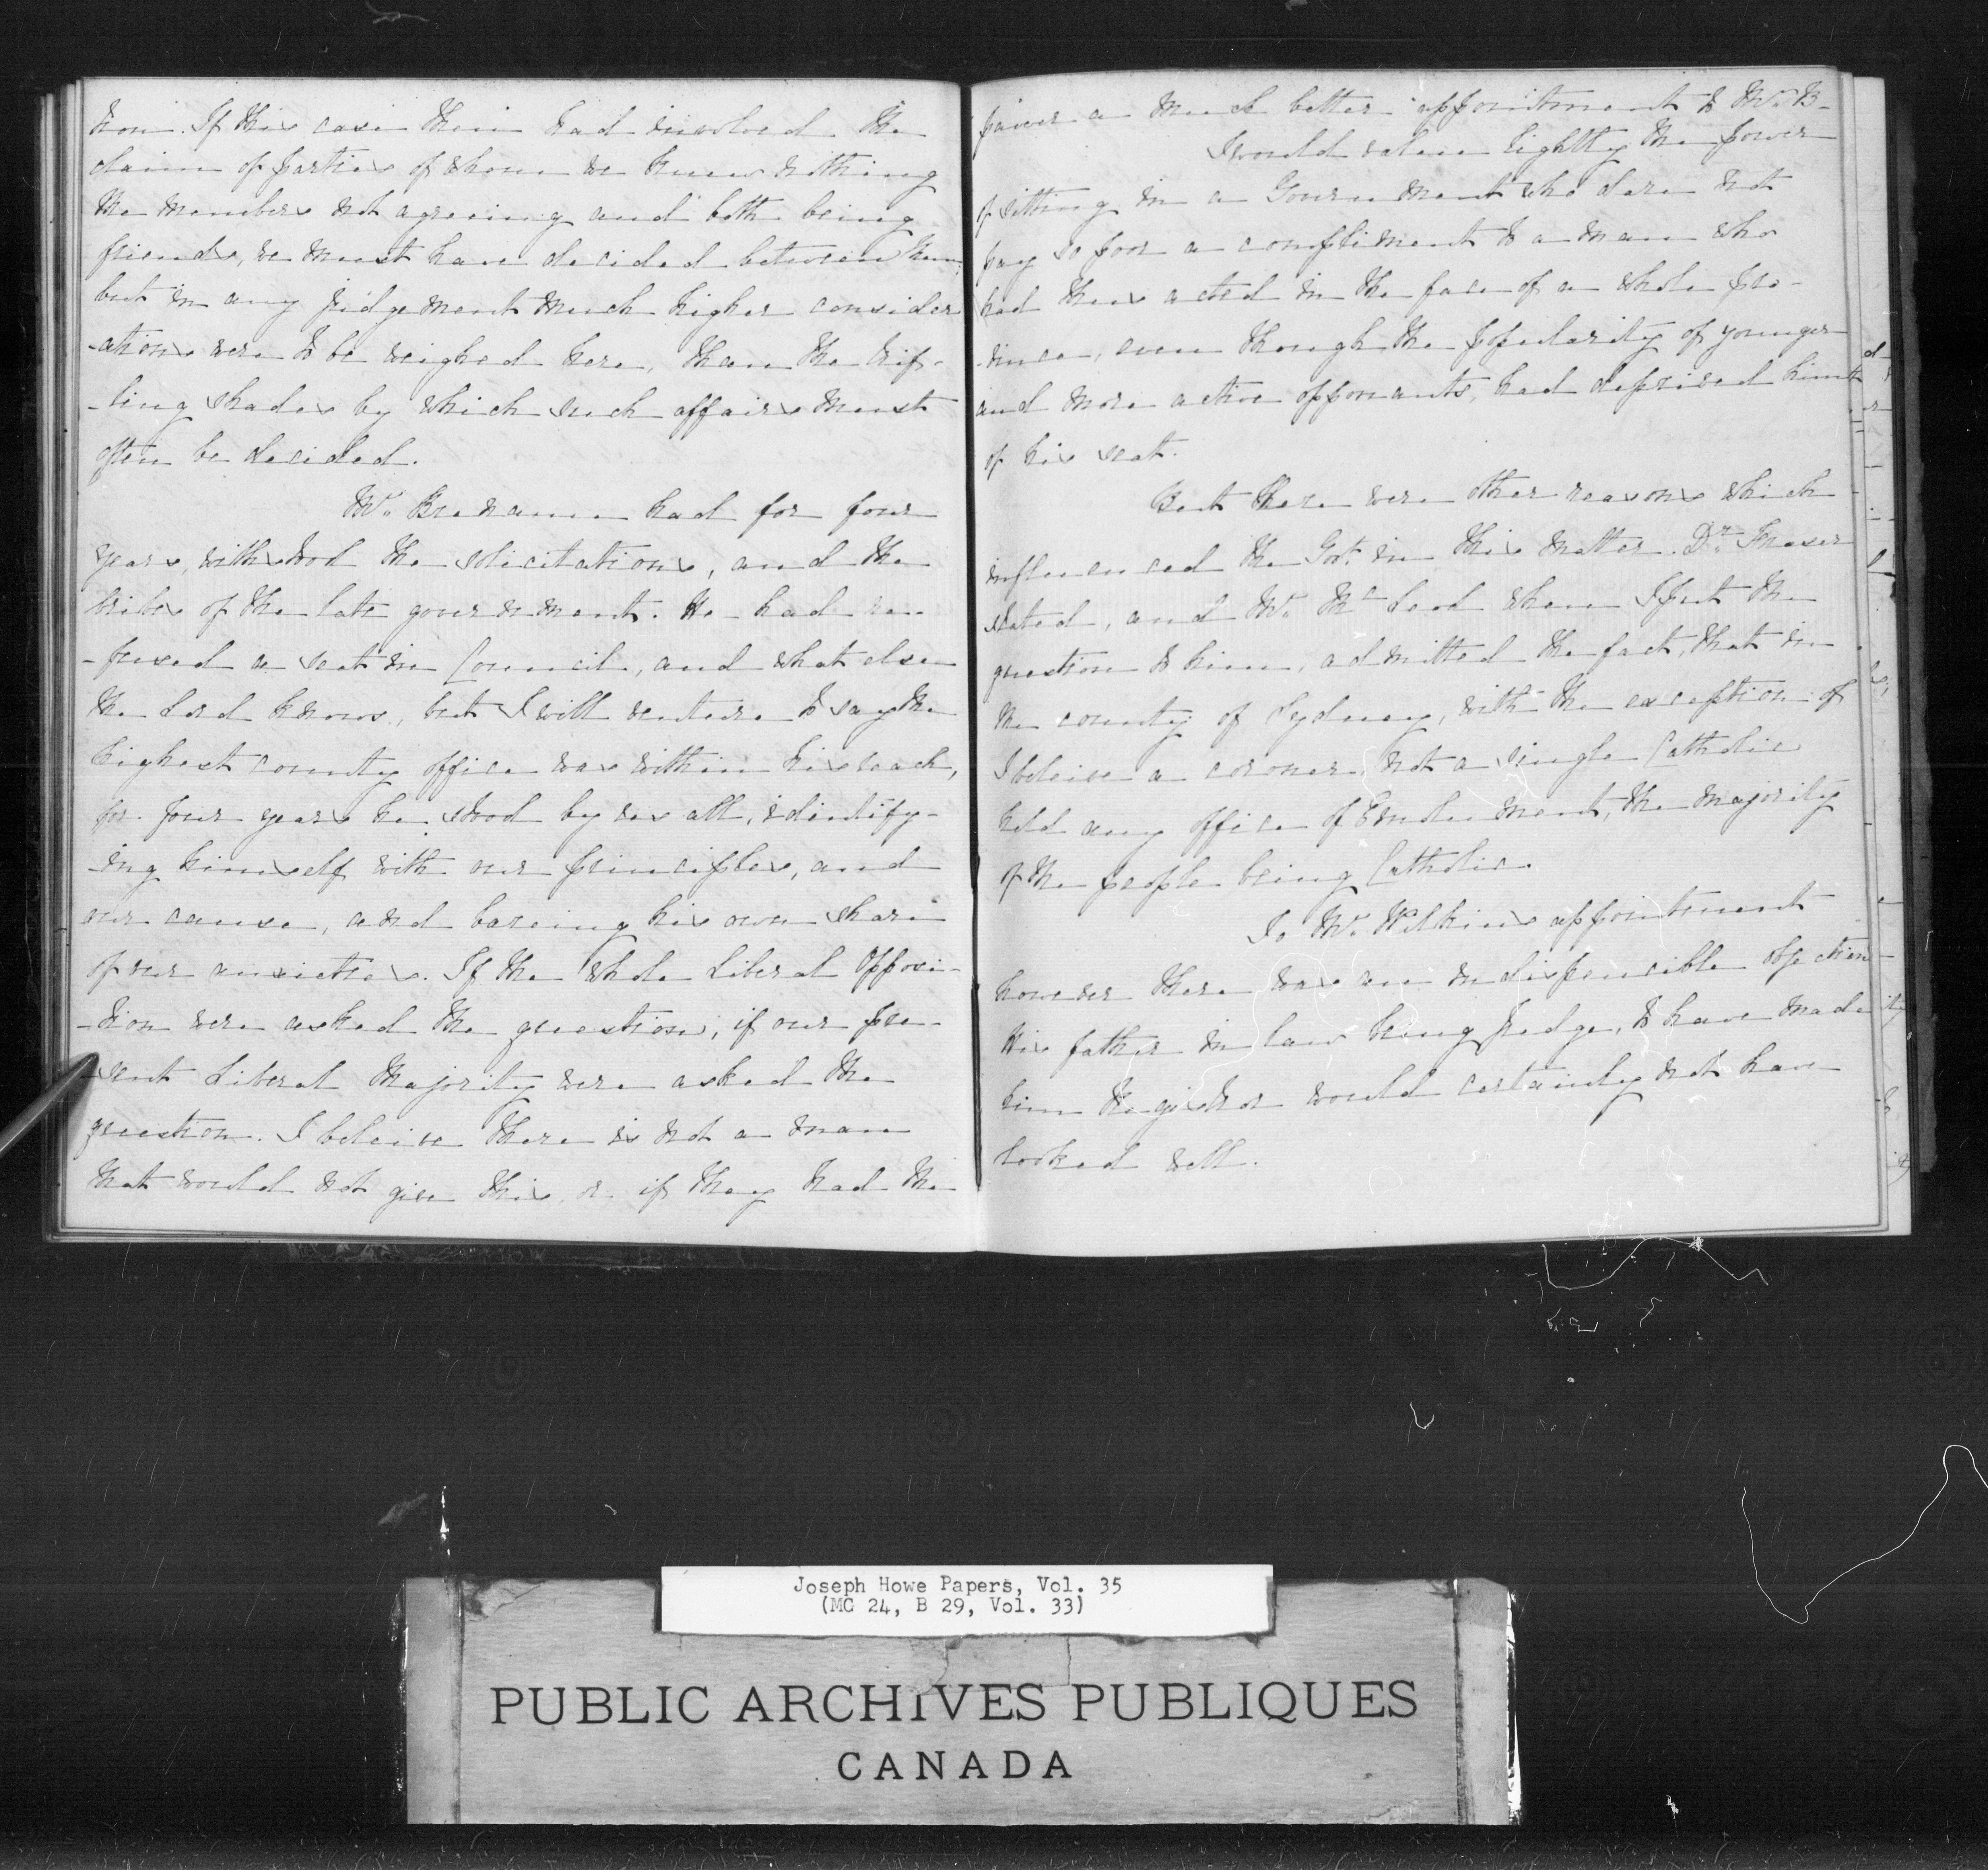 tion. If this case then had involved the
claim of parties of whom we knew nothing
the members not agreeing and both being
friends, we must have decided between them;
but in any judgement much higher consider
-ations were to be weighed here, than the trif-
-ling shades by which such affairs must
often be decided.
Mr. Brenan had for four
years, withstood the solicitations, and the
bribes of the late government. He had re-
-fused a seat in Council, and what else
the Lord knows, but I will venture to say the
highest county office was within his reach,
for four years he stood by us all, identify-
-ing himself with our principles, and
our cause, and bareing his own share
of our anxieties. If the whole Liberal Opposi-
-tion were asked the question, if our pre-
-sent Liberal Majority were asked the
question. I beleive there is not a man
that would not give this, or if they had the
power a much better appointment to Mr. B-
I would value lightly the power
of sitting in a Government who dare not
pay so poor a compliment to a man who
had thus acted in the face of a whole pro-
-vince, even though the popularity of younger
and more active opponants, had deprived him
of his seat.
But there were other reasons which
influenced the Govt. in this matter. Dr. Fraser
stated, and Mr. McLeod when I put the
question to him, admitted the fact, that in
the county of Sydney, with the exception of
I beleive a coroner, not a single Catholic
held any office of Emolument, the majority
of the people being Catholic.
To Mr. Wilkins appointment
however there was an indispencible objection
His father in law being Judge, to have made
him Registrar would certainly not have
looked well.
Joseph Howe Papers, Vol. 35
(MG 24, B 29, Vol. 33)
PUBLIC ARCHIVES PUBLIQUES
CANADA